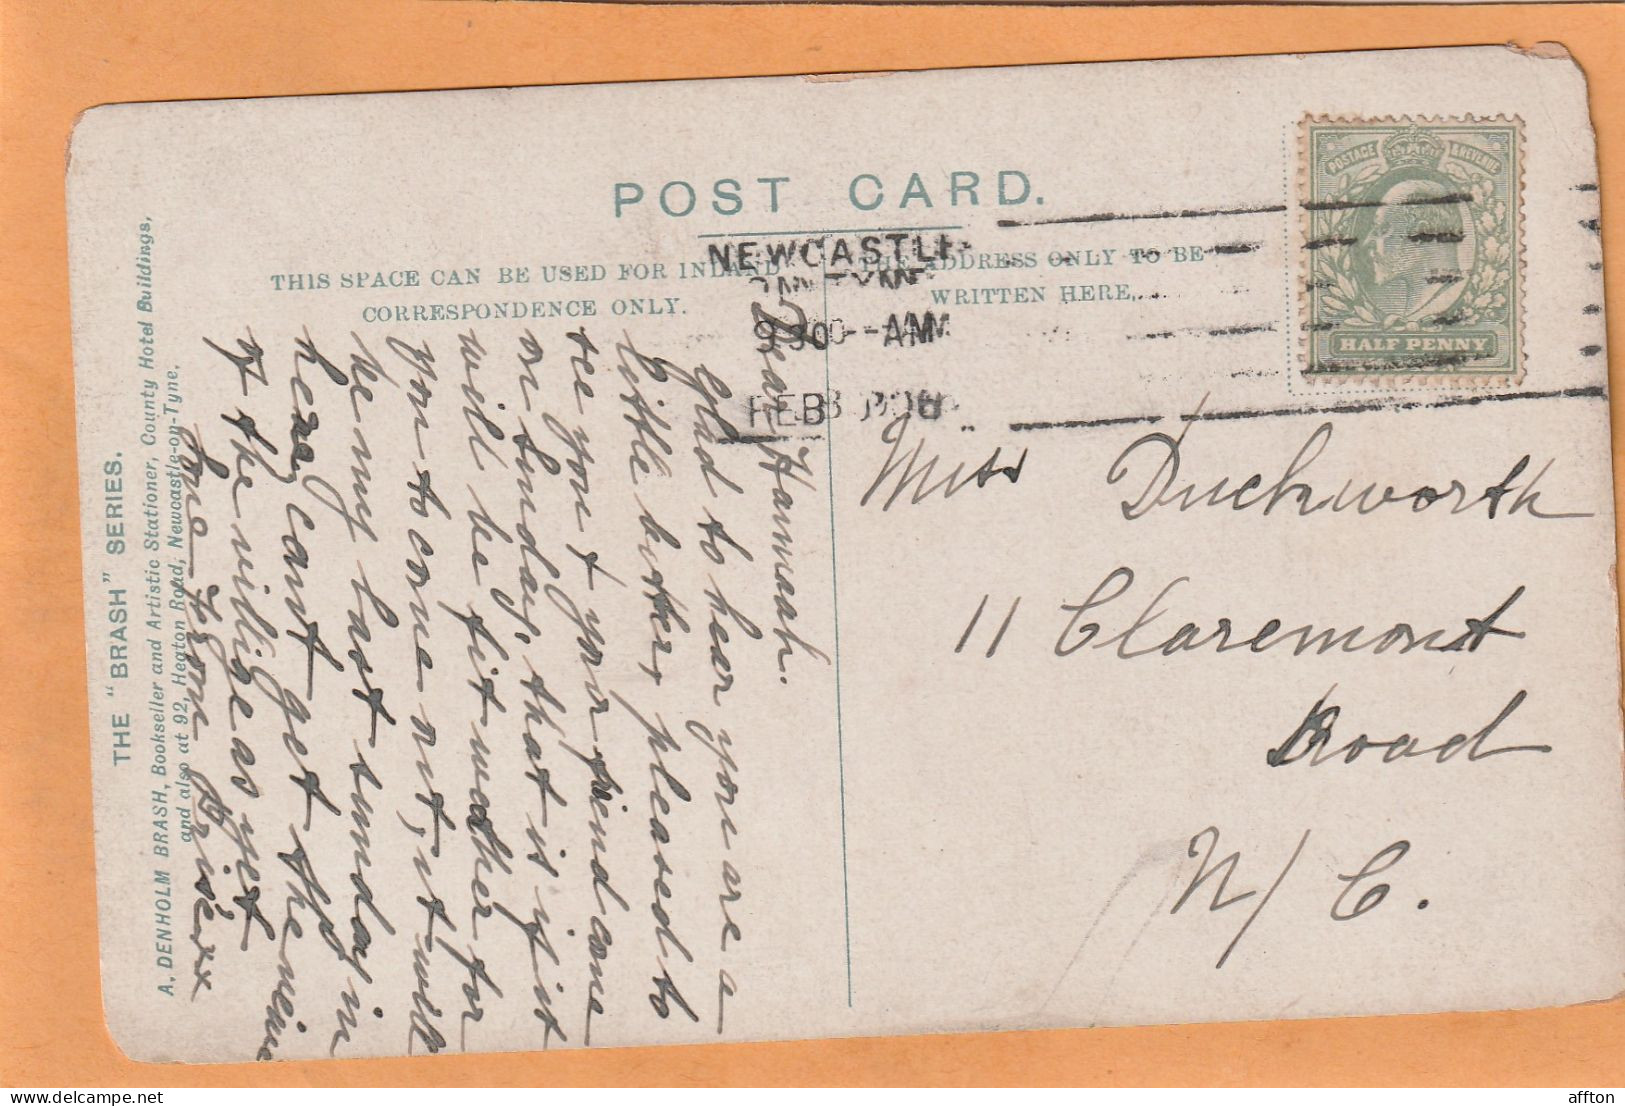 POST CARD.
THIS SPACE CAN BE USED FOR INLAND
CORRESPONDENCE ONLY.
THE ADDRESS ONLY TO BE
WRITTEN HERE.
NEWCASTLE
9 30 AM
FEB
POSTAGE & REVENUE
HALF PENNY
THE "BRASH" SERIES.
A. DENHOLM BRASH, Bookseller and Artistic Stationer, County Hotel Buildings,
and also at 92, Heaton Road, Newcastle-on-Tyne.
Dear Hannah.
Glad to hear you are a
little better, pleased to
see you & your friend come
on Sunday, that is if it
will be fit weather for
you to come out, it will
be my last sunday in
here, cant get the view
of the villige as yet
love from
Miss Duckworth
11 Claremont
Road
N/C.
affton